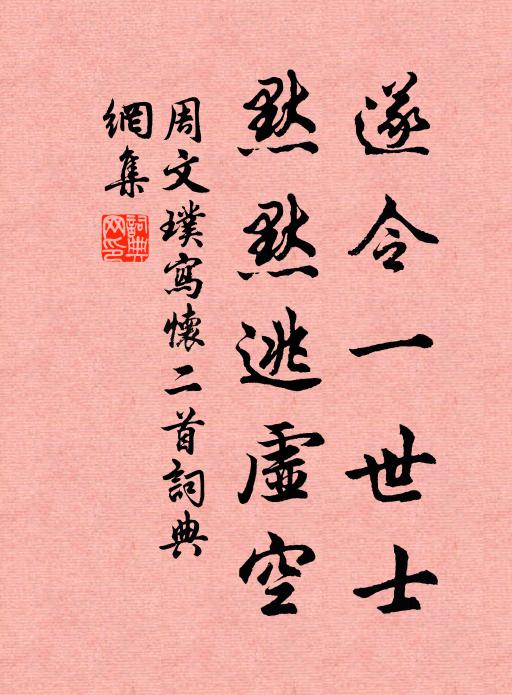 遂令一世士
默默逃虛空
周文璞寫懷二首詞典
網集
詞典網印